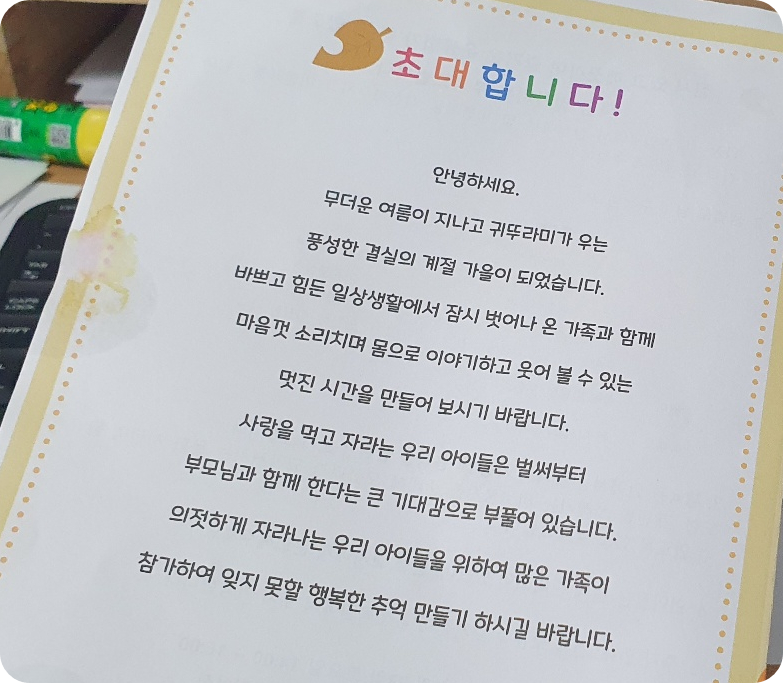 초대합니다!
안녕하세요.
무더운 여름이 지나고 귀뚜라미가 우는
풍성한 결실의 계절 가을이 되었습니다.
바쁘고 힘든 일상생활에서 잠시 벗어나 온 가족과 함께
마음껏 소리치며 몸으로 이야기하고 웃어 볼 수 있는
멋진 시간을 만들어 보시기 바랍니다.
사랑을 먹고 자라는 우리 아이들은 벌써부터
부모님과 함께 한다는 큰 기대감으로 부풀어 있습니다.
의젓하게 자라나는 우리 아이들을 위하여 많은 가족이
참가하여 잊지 못할 행복한 추억 만들기 하시길 바랍니다.